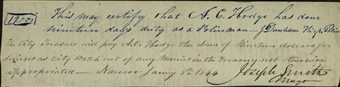 $19.00
This may certify that A. C. Hodge has done
nineteen days duty as a Policeman J Dunham High Police
The City Treasurer will pay A. C. Hodge the sum of Nineteen dollars for
services as City Watch out of any Monies in the Treasury not otherwise
appropriated Nauvoo Jany 8th 1844 Joseph Smith
Mayor